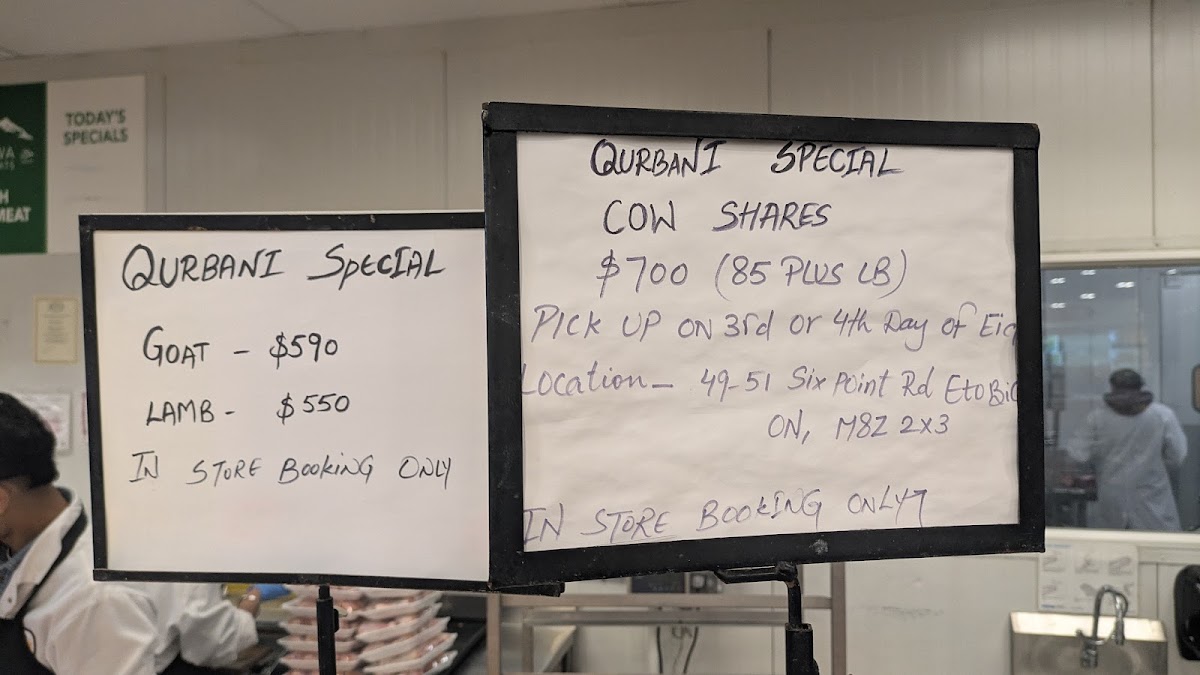 TODAY'S
SPECIALS
MEAT
QURBANI SPECIAL
GOAT - $590
LAMB - $550
IN STORE BOOKING ONLY
QURBANI SPECIAL
COW SHARES
$700 (85 PLUS LB)
PICK UP ON 3rd or 4th Day of
Location - 49-51 Six Point Rd
ON, M8Z 2X3
IN STORE BOOKING ONLY